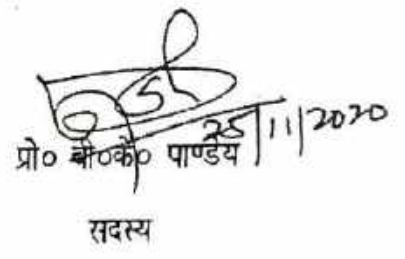 25/11/2020
प्रो० बी०के० पाण्डेय
सदस्य